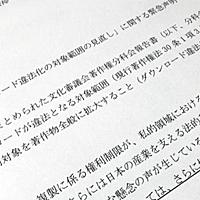 ード違法化の対象範囲の見直し」に関する緊急声明
まとめられた文化審議会著作権分科会報告書（以下、分科
ードが違法となる対象範囲（現行著作権法30条1項3
対象を著作物全般に拡大すること（ダウンロード違法
複製に係る権利制限が、私的領域における
さらには日本の産業を支える法的
懸念の声が生じている
ては、さらに